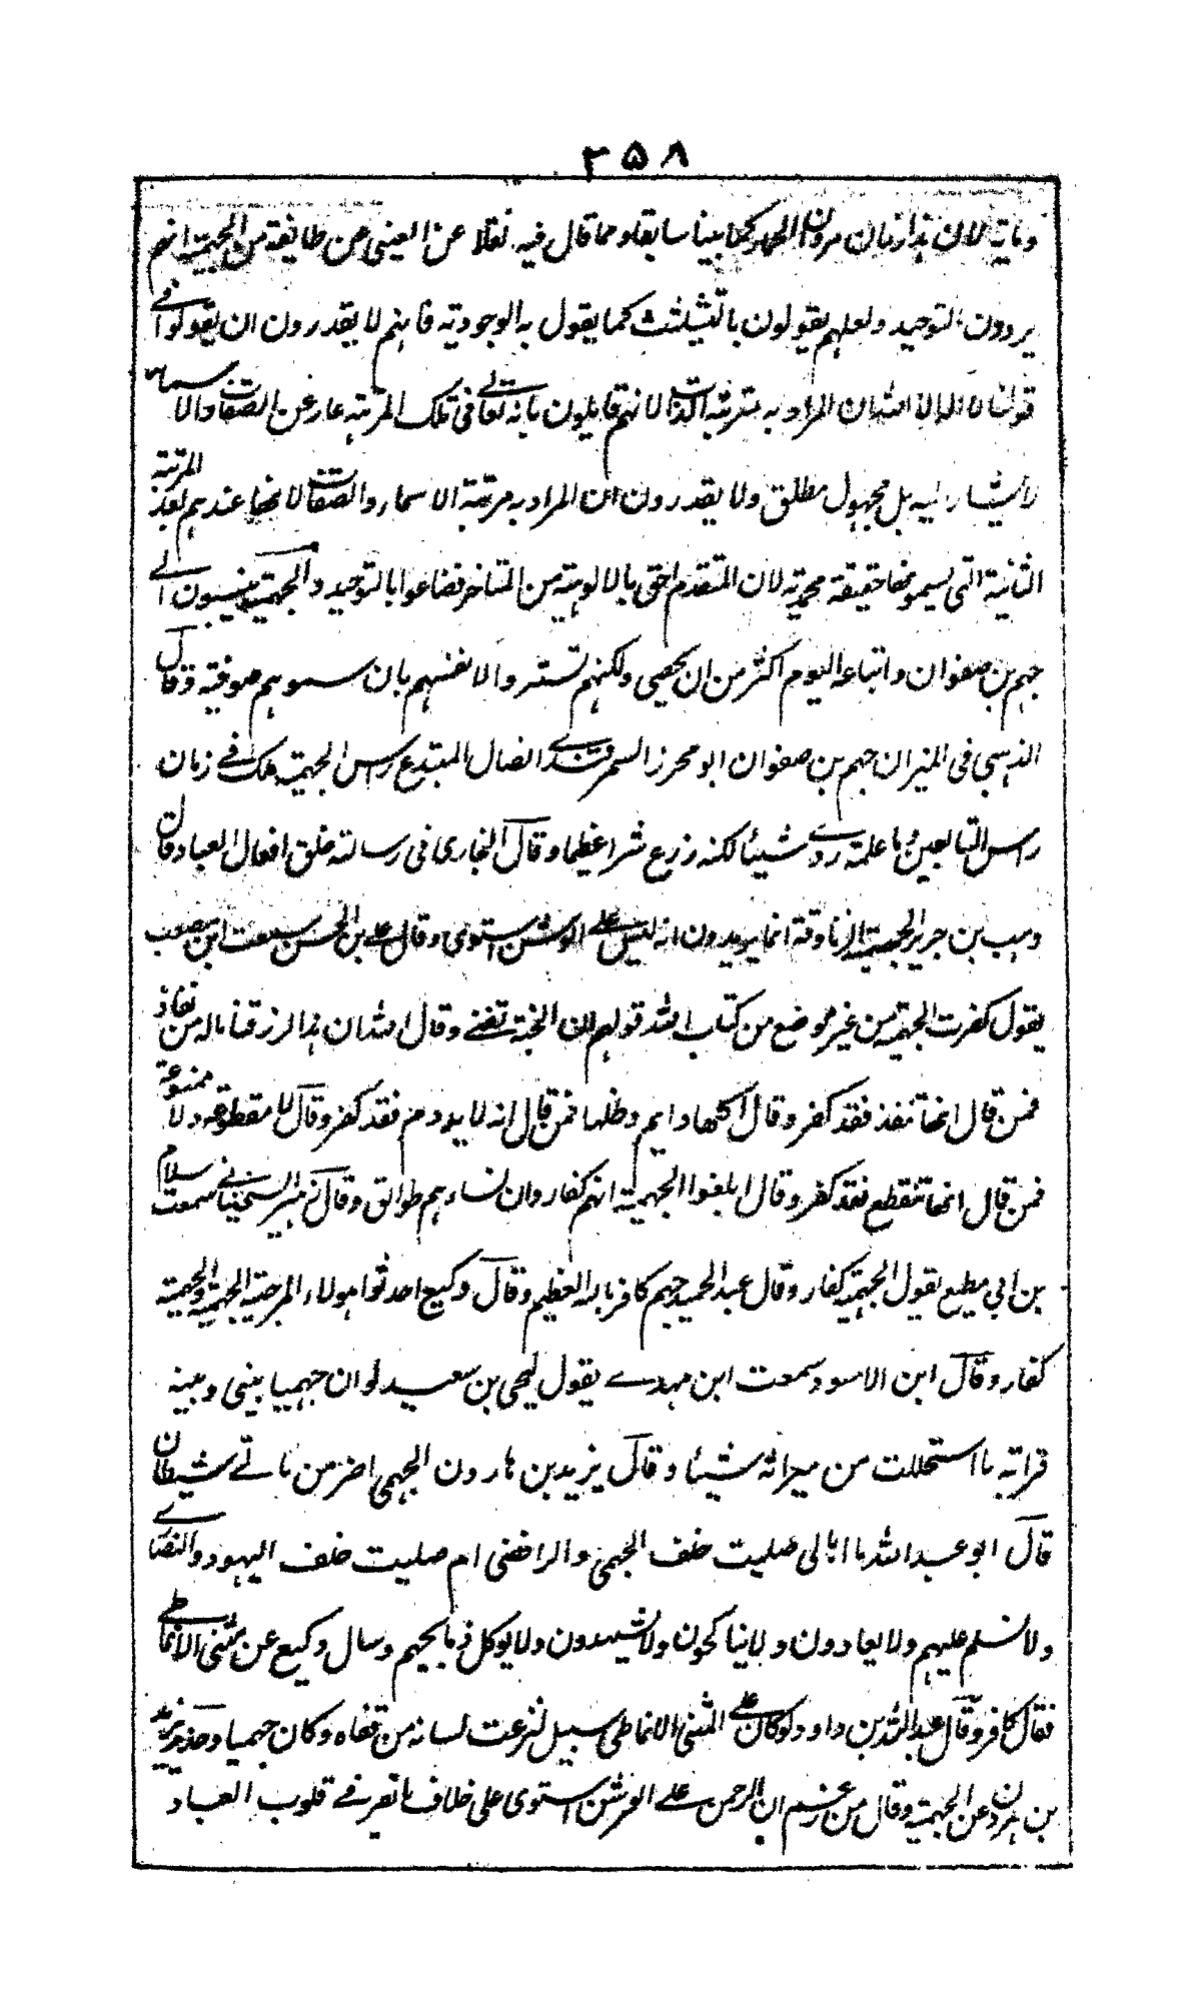 ٢٥٨
ومایة لان هذا زمان مروان الحمار کما بینا سابقا ومما قال فیه نقلا عن العینی عن طایفة من الجهمیة انهم
یردون التوحید ولعلهم یقولون بالتثلیث کما یقول به الوجودیة فانهم لا یقدرون ان یقولوا فی
قولنا لا اله الا الله ان المراد به مرتبة الذات لانهم قایلون بانه تعالی فی تلک المرتبة عار عن الصفات والاسماء
لایشار الیه بل مجهول مطلق ولا یقدرون ان المراد به مرتبة الاسماء والصفات لانها عندهم بعد المرتبة
الثانیة التی یسمونها حقیقة محمدیة لان المتقدم احق بالالوهیة من المتاخر فضاعوا بالتوحید والجهمیة ینسبون الی
جهم بن صفوان واتباعه الیوم اکثر من ان یحصی ولکنهم تستروا لانفسهم بان سموهم صوفیة وقال
الذهبی فی المیزان جهم بن صفوان ابو محرز السمرقندی الضال المبتدع راس الجهمیة هلک فی زمان
راس التابعین وما علمته روی شیئا لکنه زرع شرا عظیما وقال البخاری فی رسالته خلق افعال العباد قال
وهب بن جریر الجهمیة الزنادقة انما یریدون انه لیس علی العرش استوی وقال علی بن الحسن سمعت ابن مصعب
یقول کفرت الجهمیة من غیر موضع من کتاب الله قولهم ان الجنة تفنی وقال الله ان هذا لرزقنا ماله من نفاذ
فمن قال انها تنفذ فقد کفر وقال اکلها دایم وظلها فمن قال انه لا یدوم فقد کفر وقال لا مقطوعة ولا ممنوعة
فمن قال انها تنقطع فقد کفر وقال ابلغوا الجهمیة انهم کفار وان نساءهم طوالق وقال زهیر السختیانی سمعت سلام
بن ابی مطیع یقول الجهمیة کفار وقال عبد الحمید جهم کافر بالله العظیم وقال وکیع احدثوا هولاء المرجئة الجهمیة والجهمیة
کفار وقال ابن الاسود سمعت ابن مهدی یقول لیحی بن سعید لو ان جهمیا بینی وبینه
قرابة ما استحللت من میراثه شیئا وقال یزید بن هارون الجهمی اضر من مأتی شیطان
قال ابو عبد الله ما ابالی صلیت خلف الجهمی والرافضی ام صلیت خلف الیهود والنصاری
ولا نسلم علیهم ولا یعادون ولا یناکحون ولا یشهدون ولا یوکل ذبایحهم وسال وکیع عن مثنی الانماطی
فقال کافر وقال عبد الله بن داود لو کان علی المثنی الانماطی سبیل لنزعت لسانه من قفاه وکان جهمیا وحذر یزید
بن هرون عن الجهمیة وقال من زعم ان الرحمن علی العرش استوی علی خلاف ما تقرر فی قلوب العباد